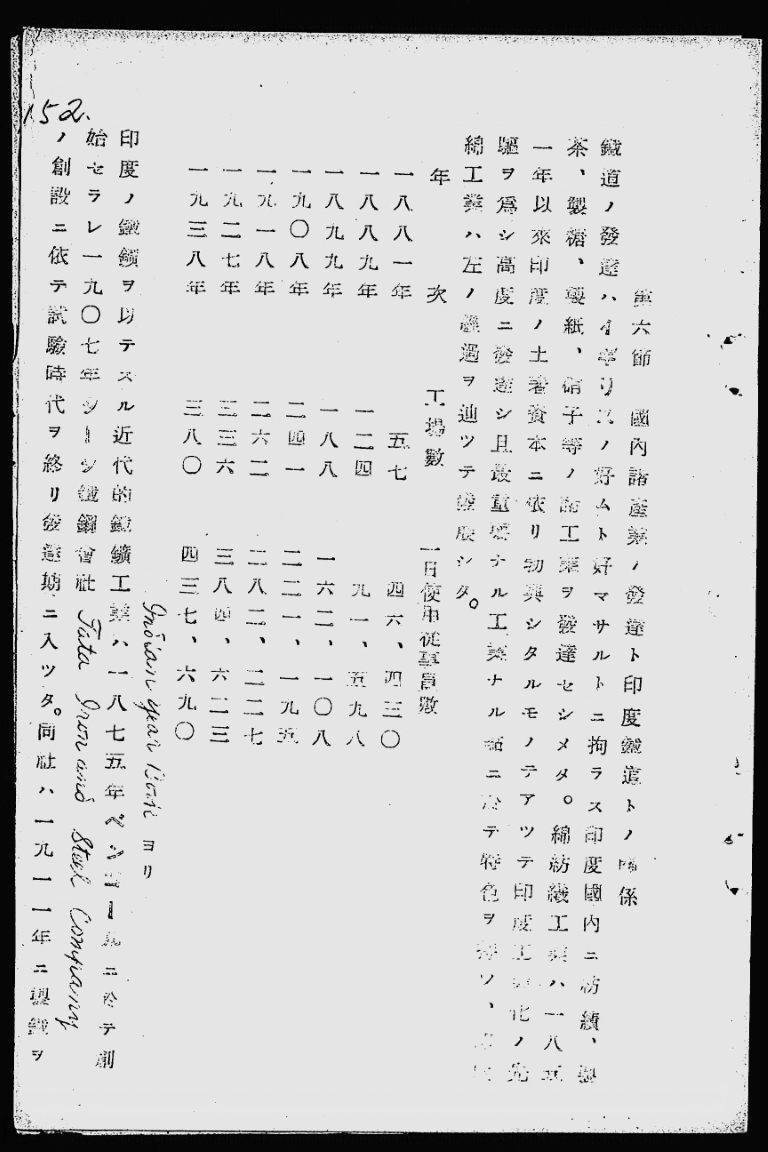 152.
第六節 國內諸產業ノ發達ト印度鐵道トノ關係
鐵道ノ發達ハイギリスノ好ムト好マサルトニ拘ラス印度國內ニ紡績、製
茶、製糖、製紙、硝子等ノ諸工業ヲ發達セシメタ。綿紡織工業ハ一八五
一年以來印度ノ土著資本ニ依リ勃興シタルモノテアツテ印度工業化ノ先
驅ヲ爲シ高度ニ發達シ且最重要ナル工業ナル點ニ於テ特色ヲ持ツ、
綿工業ハ左ノ經過ヲ辿ツテ發展シタ。
年次 工場數 一日使用從事員數
一八八一年 五七 四六、四三〇
一八八九年 一二四 九一、五九八
一八九九年 一八八 一六二、一〇八
一九〇八年 二四一 二二一、一九五
一九一八年 二六二 二八二、二二七
一九二七年 三三六 三八四、六二三
一九三八年 三八〇 四三七、六九〇
Indian year Book ヨリ
印度ノ鐵鑛ヲ以テスル近代的鐵鑛工業ハ一八七五年ベンゴール州ニ於テ創
始セラレ一九〇七年タータ鐵鋼會社 Tata Iron and Steel Company
ノ創設ニ依テ試驗時代ヲ終リ發達期ニ入ツタ。同社ハ一九一一年ニ製鐵ヲ